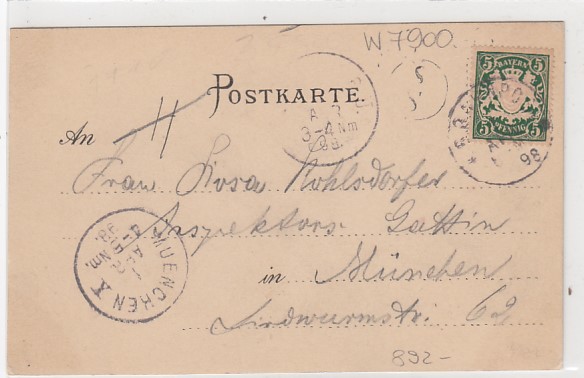 W 7900.
5 BAYERN 5
5 PFENNIG 5
98
POSTKARTE.
3-4 Nm
98
An
Frau Rosa Kohlsdorfer
Inspektors Gattin
in München
Lindwurmstr. 62
MUENCHEN X
Nm.
98.
892-